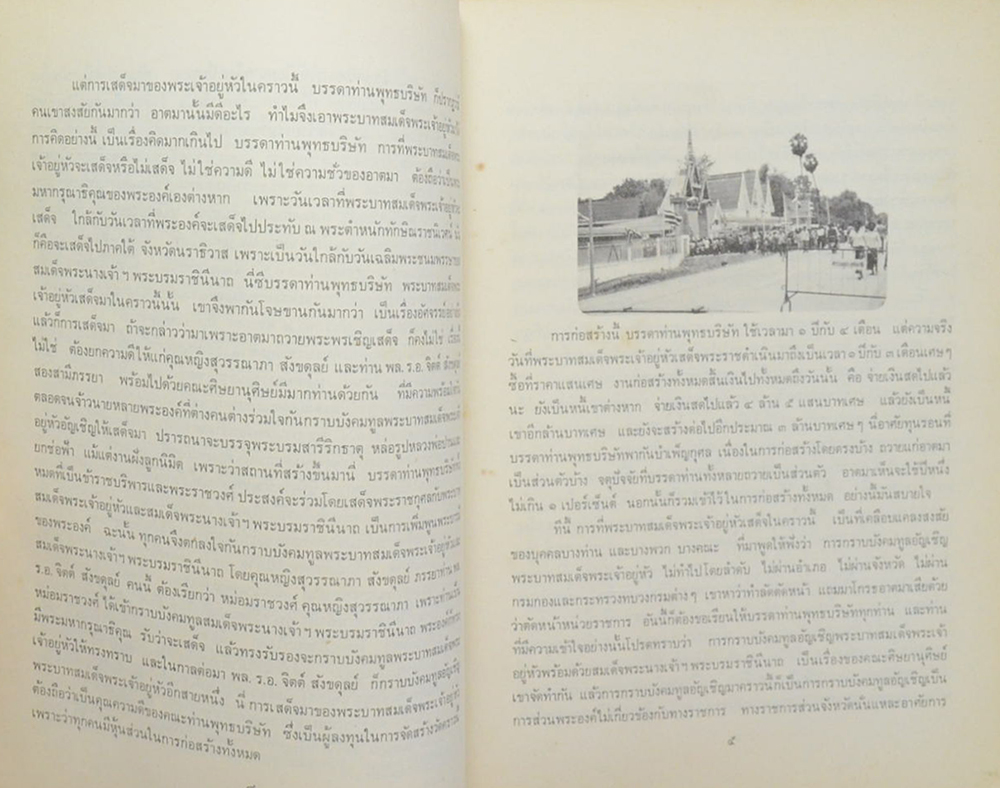 แต่การเสด็จมาของพระเจ้าอยู่หัวในคราวนี้ บรรดาท่านพุทธบริษัท ก็ปรากฏว่า
คนเขาสงสัยกันมากว่า อาตมานั้นมีดีอะไร ทำไมจึงเอาพระบาทสมเด็จพระเจ้าอยู่หัวมาได้
การคิดอย่างนี้ เป็นเรื่องคิดมากเกินไป บรรดาท่านพุทธบริษัท การที่พระบาทสมเด็จพระ
เจ้าอยู่หัวจะเสด็จหรือไม่เสด็จ ไม่ใช่ความดี ไม่ใช่ความชั่วของอาตมา ต้องถือว่าเป็นพระ
มหากรุณาธิคุณของพระองค์เองต่างหาก เพราะวันเวลาที่พระบาทสมเด็จพระเจ้าอยู่หัว
เสด็จ ใกล้กับวันเวลาที่พระองค์จะเสด็จไปประทับ ณ พระตำหนักทักษิณราชนิเวศน์
ก็คือจะเสด็จไปภาคใต้ จังหวัดนราธิวาส เพราะเป็นวันใกล้กับวันเฉลิมพระชนมพรรษา
สมเด็จพระนางเจ้า ฯ พระบรมราชินีนาถ นี่ซิบรรดาท่านพุทธบริษัท พระบาทสมเด็จพระ
เจ้าอยู่หัวเสด็จมาในคราวนี้นั้น เขาจึงพากันโจษขานกันมากว่า เป็นเรื่องอัศจรรย์
แล้วก็การเสด็จมา ถ้าจะกล่าวว่ามาเพราะอาตมาถวายพระพรเชิญเสด็จ ก็คงไม่ใช่
ไม่ใช่ ต้องยกความดีให้แก่คุณหญิงสุวรรณาภา สังขดุลย์ และท่าน พล. ร.อ. จิตต์ สังขดุลย์
สองสามีภรรยา พร้อมไปด้วยคณะศิษยานุศิษย์มีมากท่านด้วยกัน ที่มีความพร้อม
ตลอดจนจ้าวนายหลายพระองค์ที่ต่างคนต่างร่วมใจกันกราบบังคมทูลพระบาทสมเด็จพระเจ้า
อยู่หัวอัญเชิญให้เสด็จมา ปรารถนาจะบรรจุพระบรมสารีริกธาตุ หล่อรูปหลวงพ่อปานและ
ยกช่อฟ้า แม้แต่งานฝังลูกนิมิต เพราะว่าสถานที่สร้างขึ้นมานี่ บรรดาท่านพุทธบริษัท
หมดที่เป็นข้าราชบริพารและพระราชวงศ์ ประสงค์จะร่วมโดยเสด็จพระราชกุศลกับพระบาท
สมเด็จพระเจ้าอยู่หัวและสมเด็จพระนางเจ้าฯ พระบรมราชินีนาถ เป็นการเพิ่มพูนพระบารมี
ของพระองค์ ฉะนั้น ทุกคนจึงตกลงใจกันกราบบังคมทูลพระบาทสมเด็จพระเจ้าอยู่หัวและ
สมเด็จพระนางเจ้าฯ พระบรมราชินีนาถ โดยคุณหญิงสุวรรณาภา สังขดุลย์ ภรรยาท่าน พล.
ร.อ. จิตต์ สังขดุลย์ คนนี้ ต้องเรียกว่า หม่อมราชวงศ์ คุณหญิงสุวรรณาภา เพราะท่านเป็น
หม่อมราชวงศ์ ได้เข้ากราบบังคมทูลสมเด็จพระนางเจ้า ฯ พระบรมราชินีนาถ พระองค์
มีพระมหากรุณาธิคุณ รับว่าจะเสด็จ แล้วทรงรับรองจะกราบบังคมทูลพระบาทสมเด็จพระ
เจ้าอยู่หัวให้ทรงทราบ และในกาลต่อมา พล. ร.อ. จิตต์ สังขดุลย์ ก็กราบบังคมทูลอัญเชิญ
พระบาทสมเด็จพระเจ้าอยู่หัวอีกสายหนึ่ง นี่ การเสด็จมาของพระบาทสมเด็จพระเจ้าอยู่หัว
ต้องถือว่าเป็นคุณความดีของคณะท่านพุทธบริษัท ซึ่งเป็นผู้ลงทุนในการจัดสร้างวัดคราวนี้
เพราะว่าทุกคนมีหุ้นส่วนในการก่อสร้างทั้งหมด
การก่อสร้างนี้ บรรดาท่านพุทธบริษัท ใช้เวลามา ๑ ปีกับ ๔ เดือน แต่ความจริง
วันที่พระบาทสมเด็จพระเจ้าอยู่หัวเสด็จพระราชดำเนินมาถึงเป็นเวลา ๑ ปีกับ ๓ เดือนเศษๆ
ซื้อที่ราคาแสนเศษ งานก่อสร้างทั้งหมดสิ้นเงินไปทั้งหมดถึงวันนั้น คือ จ่ายเงินสดไปแล้ว
นะ ยังเป็นหนี้เขาต่างหาก จ่ายเงินสดไปแล้ว ๔ ล้าน ๕ แสนบาทเศษ แล้วยังเป็นหนี้
เขาอีกล้านบาทเศษ และยังจะสร้างต่อไปอีกประมาณ ๓ ล้านบาทเศษ ๆ นี่อาศัยทุนรอนที่
บรรดาท่านพุทธบริษัทพากันบำเพ็ญกุศล เนื่องในการก่อสร้างโดยตรงบ้าง ถวายแก่อาตมา
เป็นส่วนตัวบ้าง จตุปัจจัยที่บรรดาท่านทั้งหลายถวายเป็นส่วนตัว อาตมาเห็นจะใช้ปีหนึ่ง
ไม่เกิน ๑ เปอร์เซ็นต์ นอกนั้นก็รวมเข้าไว้ในการก่อสร้างทั้งหมด อย่างนี้มันสบายใจ
ทีนี้ การที่พระบาทสมเด็จพระเจ้าอยู่หัวเสด็จในคราวนี้ เป็นที่เคลือบแคลงสงสัย
ของบุคคลบางท่าน และบางพวก บางคณะ ที่มาพูดให้ฟังว่า การกราบบังคมทูลอัญเชิญ
พระบาทสมเด็จพระเจ้าอยู่หัว ไม่ทำไปโดยลำดับ ไม่ผ่านอำเภอ ไม่ผ่านจังหวัด ไม่ผ่าน
กรมกองและกระทรวงทบวงกรมต่างๆ เขาหาว่าทำลัดตัดหน้า แถมมาโกรธอาตมาเสียด้วย
ว่าตัดหน้าหน่วยราชการ อันนี้ก็ต้องขอเรียนให้บรรดาท่านพุทธบริษัททุกท่าน และท่าน
ที่มีความเข้าใจอย่างนั้นโปรดทราบว่า การกราบบังคมทูลอัญเชิญพระบาทสมเด็จพระเจ้า
อยู่หัวพร้อมด้วยสมเด็จพระนางเจ้าฯ พระบรมราชินีนาถ เป็นเรื่องของคณะศิษยานุศิษย์
เขาจัดทำกัน แล้วการกราบบังคมทูลอัญเชิญมาคราวนี้ก็เป็นการกราบบังคมทูลอัญเชิญเป็น
การส่วนพระองค์ไม่เกี่ยวข้องกับทางราชการ ทางราชการส่วนจังหวัดนั้นแหละอาศัยการ
๕